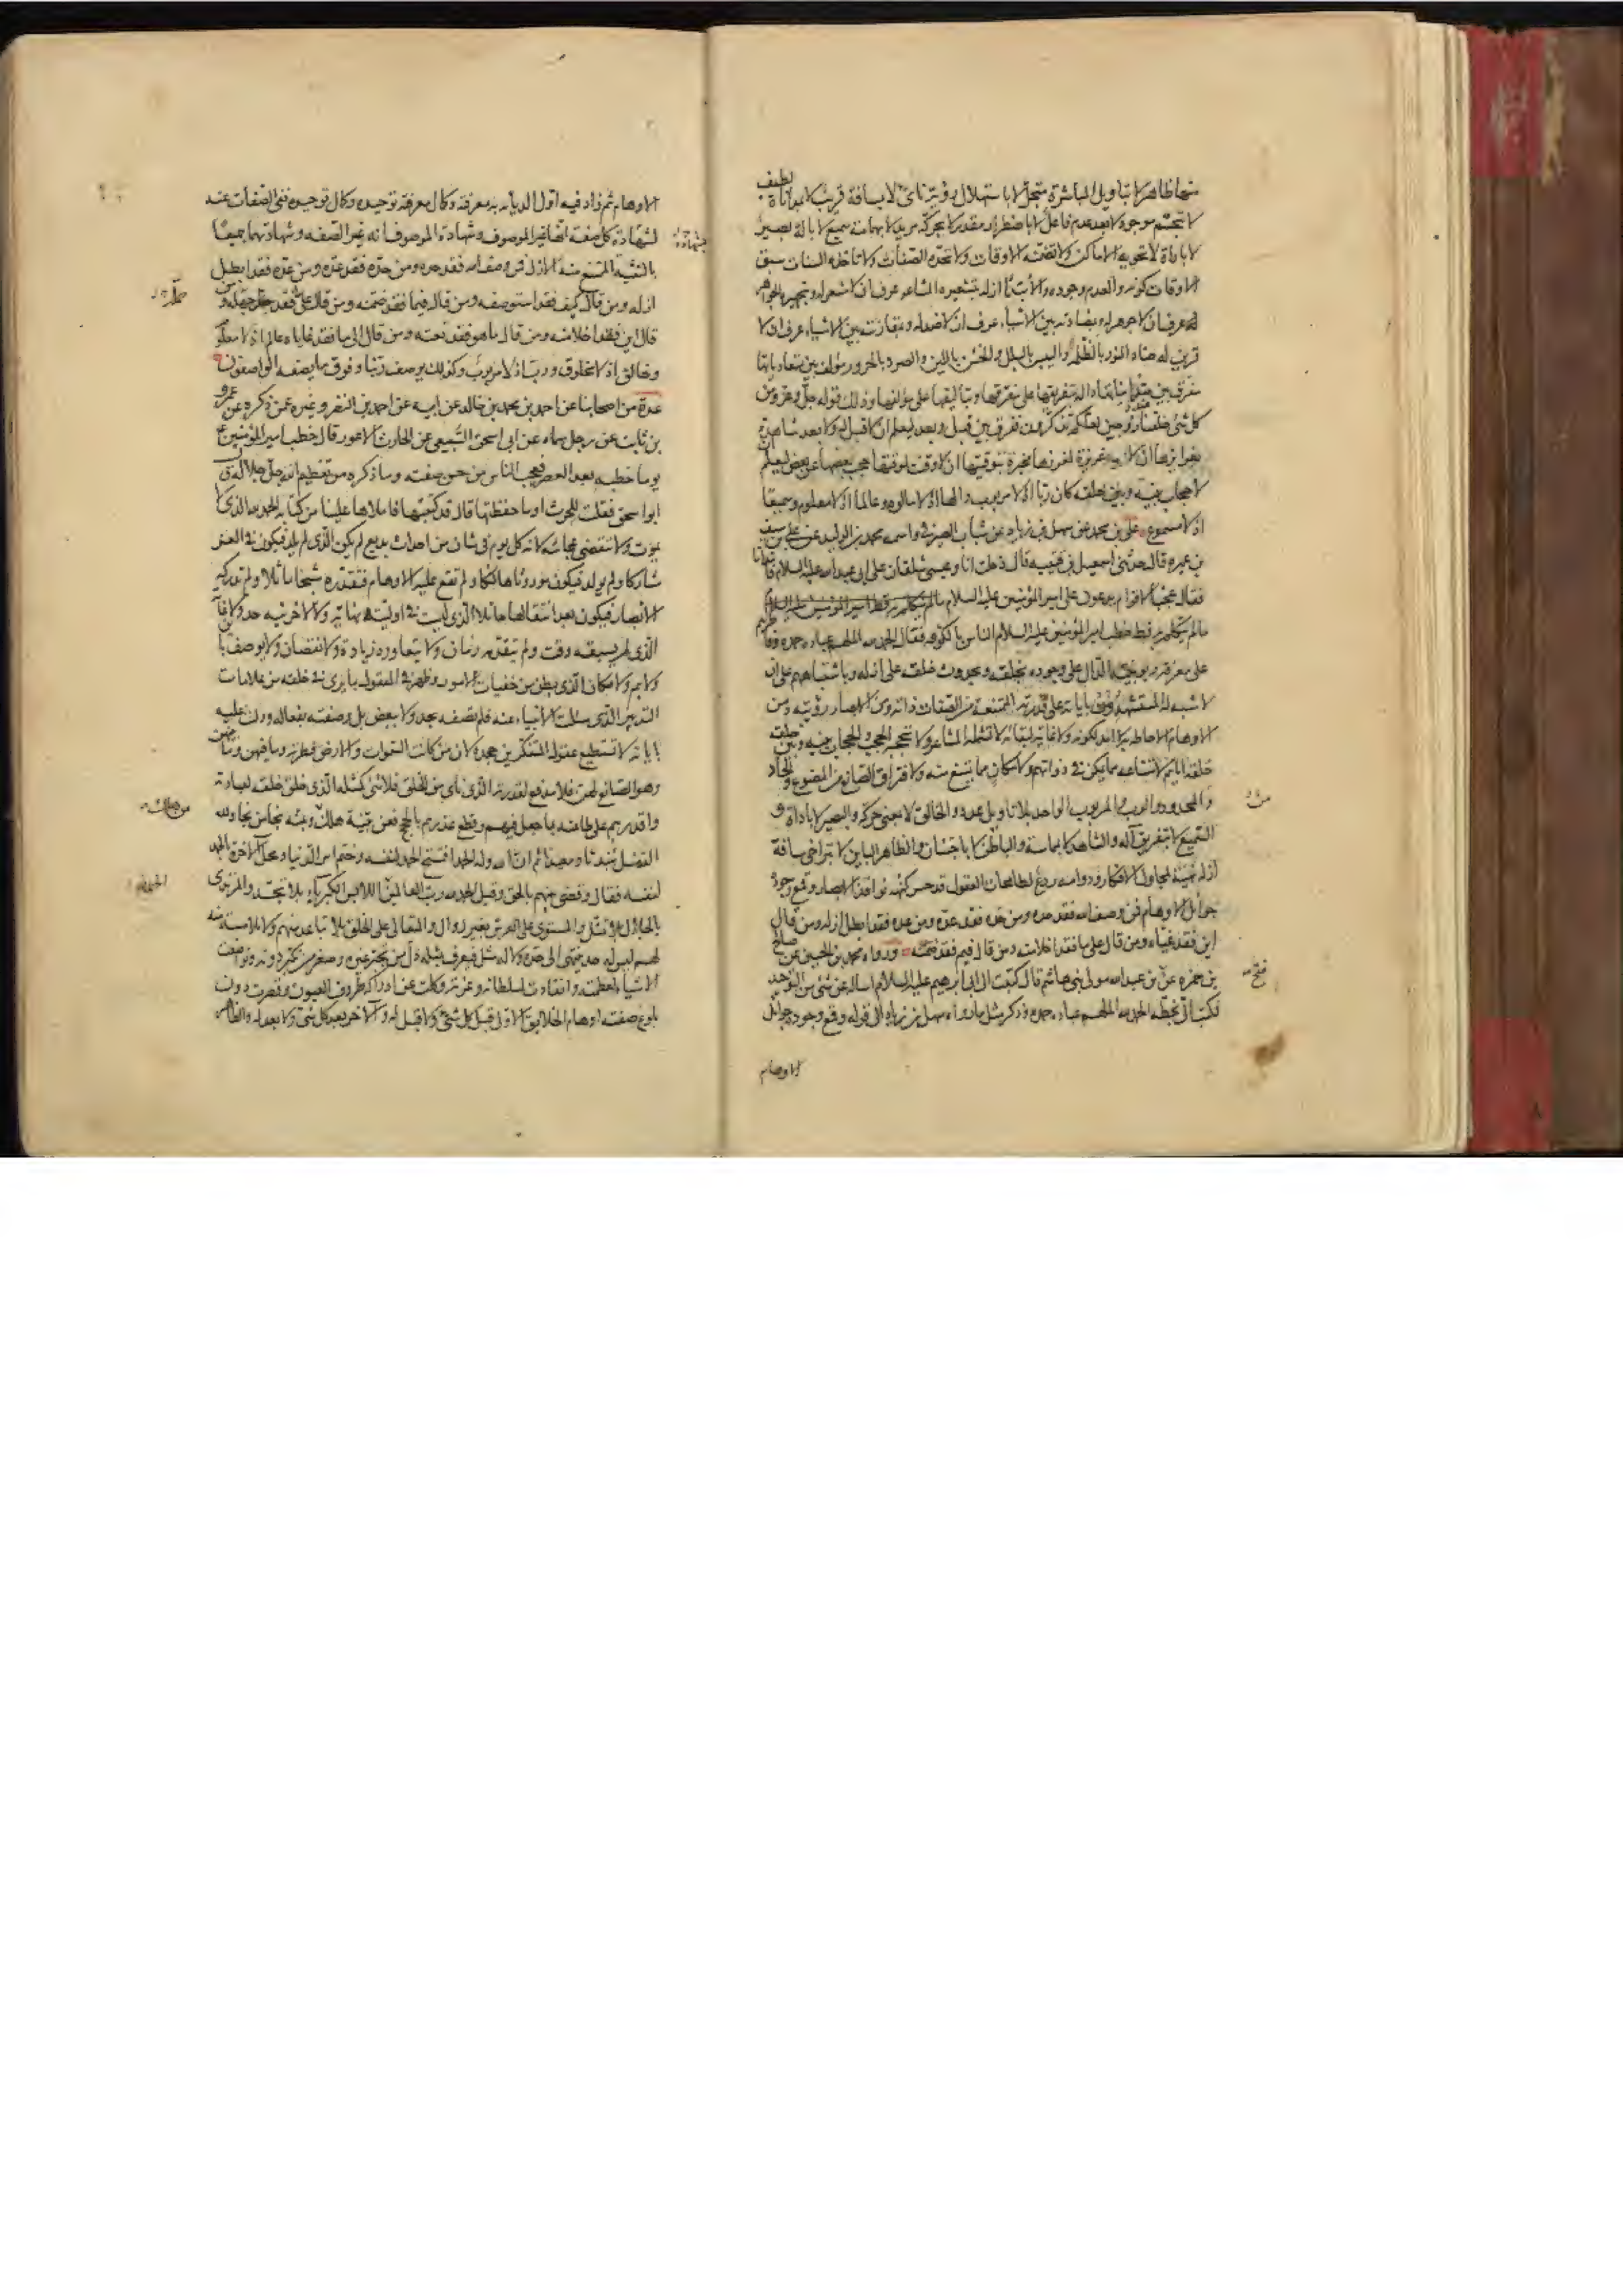 شحا ظاهر لا بتاويل المباشرة متجل لا باستهلال رؤية ناي لا بمسافة قريب لا بمداناة لطيف
لا بتجسم موجود لا بعد عدم فاعل لا باضطرار مقدر لا بحركة مريد لا بهمامة سميع لا بالة بصير
لا باداة لا تحويه الاماكن ولا تضمنه الاوقات ولا تحده الصفات ولا تاخذه السنات سبق
الاوقات كونه والعدم وجوده والابتداء ازله بتشعيره المشاعر عرف ان لا مشعر له وبتجهيره الجواهر
عرف ان لا جوهر له وبمضادته بين الاشياء عرف ان لا ضد له وبمقارنته بين الاشياء عرف ان لا
قرين له ضاد النور بالظلمة واليبس بالبلل والخشن باللين والصرد بالحرور مؤلف بين متعادياتها
مفرق بين متدانياتها دالة بتفريقها على مفرقها وبتاليفها على مؤلفها وذلك قوله جل وعز ومن
كل شئ خلقنا زوجين لعلكم تذكرون ففرق بين قبل وبعد ليعلم ان لا قبل له ولا بعد شاهدة
بغرايزها ان لا غريزة لمغرزها مخبرة بتوقيتها ان لا وقت لموقتها حجب بعضها عن بعض ليعلم ان
لا حجاب بينه وبين خلقه كان ربا اذ لا مربوب والها اذ لا مالوه وعالما اذ لا معلوم وسميعا
اذ لا مسموع علي بن محمد عن سهل بن زياد عن شباب الصيرفي واسمه محمد بن الوليد عن علي بن سيف
بن عميرة قال حدثني اسمعيل بن قتيبة قال دخلت انا وعيسى شلقان على ابي عبدالله عليه السلام فابتدانا
فقال عجبا لاقوام يدعون على امير المؤمنين عليه السلام مالم يتكلم به قط امير المؤمنين عليه السلام
مالم يتكلم به قط خطب امير المؤمنين عليه السلام الناس بالكوفة فقال الحمد لله الملهم عباده حمده وفاطرهم
على معرفة ربوبيته الدال على وجوده بخلقه وبحدوث خلقه على ازله وباشتباههم على ان
لا شبه له المستشهد باياته على قدرته الممتنعة من الصفات ذاته ومن الابصار رؤيته ومن
الاوهام الاحاطة به لا امد لكونه ولا غاية لبقائه لا تشمله المشاعر ولا تحجبه الحجب والحجاب بينه وبين خلقه
خلقه اياهم لامتناعه مما يمكن في ذواتهم ولامكان مما يمتنع منه ولافتراق الصانع من المصنوع والحاد
والمحدود والرب والمربوب الواحد بلا تاويل عدد والخالق لا بمعنى حركة والبصير لا باداة و
السميع لا بتفريق آلة والشاهد لا بمماسة والباطن لا باجتنان والظاهر الباين لا بتراخي مسافة
ازله نهية لمجاول الافكار ودوامه ردع لطامحات العقول قد حسر كنهه نوافذ الابصار وقمع وجوده
جوائل الاوهام فمن وصف الله فقد حده ومن حده فقد عده ومن عده فقد ابطل ازله ومن قال
اين فقد غياه ومن قال على ما فقد اخلا منه ومن قال فيم فقد ضمنه ورواه محمد بن الحسين عن صالح
بن حمزه عن بن عبدالله مولى بني هاشم قال كتبت الى ابي ابرهيم عليه السلام اساله عن شئ من التوحيد
فكتب الي بخطه الحمد لله الملهم عباده حمده وذكر مثل ما رواه سهل بن زياد الى قوله وقمع وجوده جوائل
الاوهام
الاوهام ثم زاد فيه اول الديانة به معرفته وكمال معرفته توحيده وكمال توحيده نفي الصفات عنه
لشهادة كل صفة انها غير الموصوف وشهادة الموصوف انه غير الصفة وشهادتهما جميعا
بالتثنية الممتنع منه الازل فمن وصف الله فقد حده ومن حده فقد عده ومن عده فقد ابطل
ازله ومن قال كيف فقد استوصفه ومن قال فيما فقد ضمنه ومن قال على فقد جهله ومن
قال اين فقد اخلا منه ومن قال ما هو فقد نعته ومن قال الى ما فقد غاياه عالم اذ لا معلوم
وخالق اذ لا مخلوق ورب اذ لا مربوب وكذلك يوصف ربنا وفوق ما يصفه الواصفون
عدة من اصحابنا عن احمد بن محمد بن خالد عن ابيه عن احمد بن النضر وغيره عمن ذكره عن عمرو
بن ثابت عن رجل سماه عن ابي اسحق السبيعي عن الحارث الاعور قال خطب امير المؤمنين ع
يوما خطبة بعد العصر فعجب الناس من حسن صفته وما ذكره من تعظيم الله جل جلاله ق
ابو اسحق فقلت للحرث اوما حفظتها قال قد كتبتها فاملاها علينا من كتابه الحمد لله الذي لا
يموت ولا تنقضي عجائبه لانه كل يوم في شان من احداث بديع لم يكن الذي لم يلد فيكون في العز
مشاركا ولم يولد فيكون موروثا هالكا ولم تقع عليه الاوهام فتقدره شبحا ماثلا ولم تدركه
الابصار فيكون بعد انتقالها حائلا الذي ليست في اوليته نهاية ولا لاخريته حد ولا غاية
الذي لم يسبقه وقت ولم يتقدمه زمان ولا يتعاوره زيادة ولا نقصان ولا يوصف باين
ولا بم ولا مكان الذي بطن من خفيات الامور وظهر في العقول بما يرى في خلقه من علامات
التدبير الذي سئلت الانبياء عنه فلم تصفه بحد ولا ببعض بل وصفته بفعاله ودلت عليه
باياته لا تستطيع عقول المتفكرين جحده لان من كانت السموات والارض فطرته وما فيهن وما بينهن
وهو الصانع لهن فلا مدفع لقدرته الذي ناي من الخلق فلا شئ كمثله الذي خلق خلقه لعبادته
واقدرهم على طاعته بما جعل فيهم وقطع عذرهم بالحجج فعن بينة هلك وبمنه نجا من نجا ولله
الفضل مبدئا ومعيدا ثم ان الله وله الحمد افتتح الحمد لنفسه وختم امر الدنيا ومحل الاخرة بالحمد
لنفسه فقال وقضي بينهم بالحق وقيل الحمد لله رب العالمين اللابس الكبرياء بلا تجسد والمرتدي
بالجلال بلا تمثل والمستوي على العرش بغير زوال والمتعالي على الخلق بلا تباعد منهم ولا ملامسة منه
لهم ليس له حد ينتهي الى حده ولا له مثل فيعرف بمثله ذل من تجبر غيره وصغر من تكبر دونه وتواضعت
الاشياء لعظمته وانقادت لسلطانه وعزته وكلت عن ادراكه طروف العيون وقصرت دون
بلوغ صفته اوهام الخلايق الاول قبل كل شئ ولا قبل له والآخر بعد كل شئ ولا بعد له والظاهر